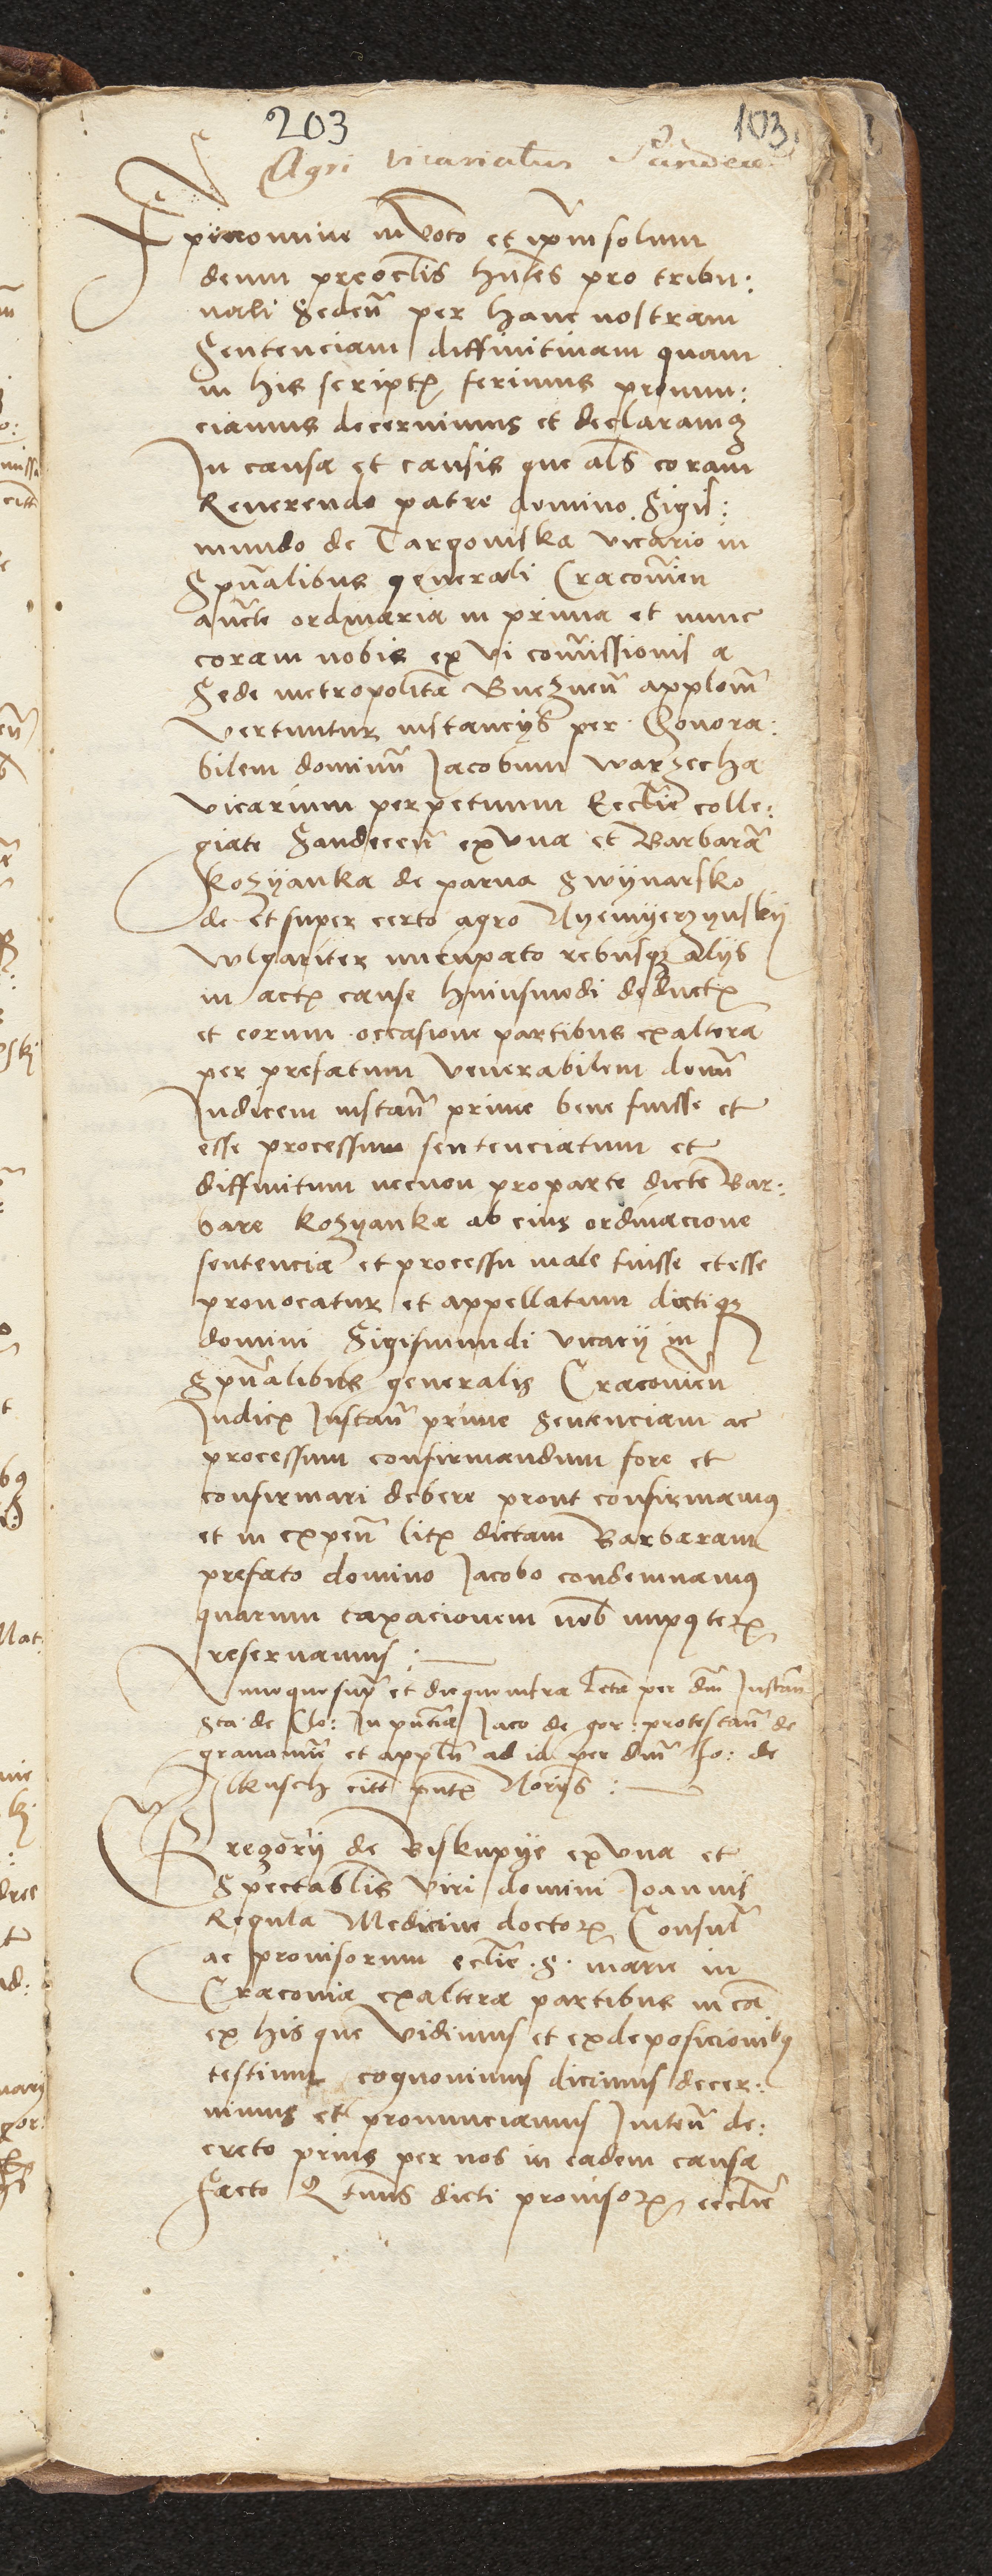 203 103
Agri vicariatus Sandecz
Xpi nomine invocato et ipsum solum
deum preoculis habentes pro tribu:
nali sedentes per hanc nostram
Sentenciam diffinitivam quam
in his scriptis ferimus pronun:
ciamus decernimus et declaramus
In causa et causis que als coram
Reverendo patre domino Sigis:
mundo de Targoviska vicario in
Spualibus generali Cracovien
aucte ordinaria in prima et nunc
coram nobis ex vi comissionis a
Sede metropolitana Gneznen applom
vertuntur instancijs per Honora:
bilem dominum Jacobum Warzecha
vicarium perpetuum Ecclie colle:
giate Sandecen ex una et Barbaram
Kozyanka de parva Swynarsko
de et super certo agro Nyemyerzynskij
vulgariter nuncupato rebusque alijs
in actis cause huiusmodi deductis
et eorum occasione partibus ex altera
per prefatum venerabilem domin
Judicem instan prime bene fuisse et
esse processum sentenciatum et
diffinitum necnon pro parte dicte Bar:
bare Kozyanka ab eius ordinacione
sentencia et processu male fuisse et esse
provocatur et appellatum dictique
domini Sigismundi vicarij in
Spualibus generalis Cracovien
Judicis Instan prime Sentenciam ac
processum confirmandum fore et
confirmari debere prout confirmamus
et in expen litis dictam Barbaram
prefato domino Jacobo condemnamus
quarum taxacionem nob imposterum
reservamus :
quo supra et die qua infra lecta per dm Instan
Sta: de Clo: In pntia Jaco de gor: protestan de
gravamine et applan ad id per dnm Jo: de
Ilkusch citt pntibus Norijs :
Gregorij de Biskupije ex una et
Spectablis viri domini Joannis
Regula Medicine doctoris Consul
ac provisorum ecclie S. marie in
Cracovia ex altera partibus in ca
ex his que vidimus et ex deposicionibus
testium cognovimus dicimus decer:
nimus et pronunciamus Inten de:
creto prius per nos in eadem causa
facto dicti provisores ecclie